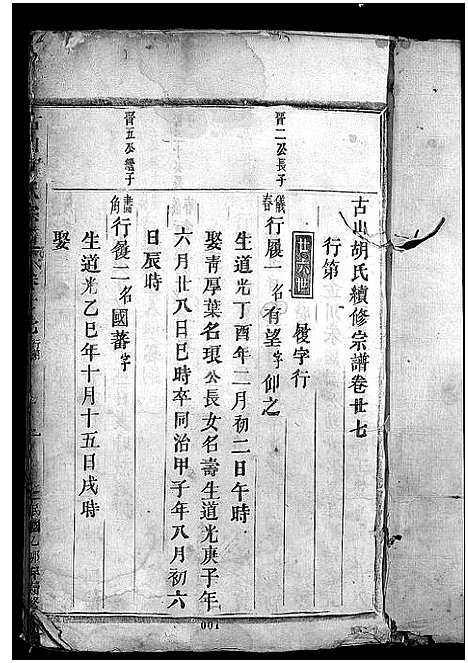 古山胡氏續修宗譜卷廿七
行第
廿六世
履字行
晉二公長子
儀春行履一名有望字仰之
生道光丁酉年二月初二日午時
娶青厚葉名琅公長女名壽生道光庚子年
六月廿八日巳時卒同治甲子年八月初六
日辰時
晉五公繼子
行履二名國蕃字
生道光乙巳年十月十五日戌時
娶
001